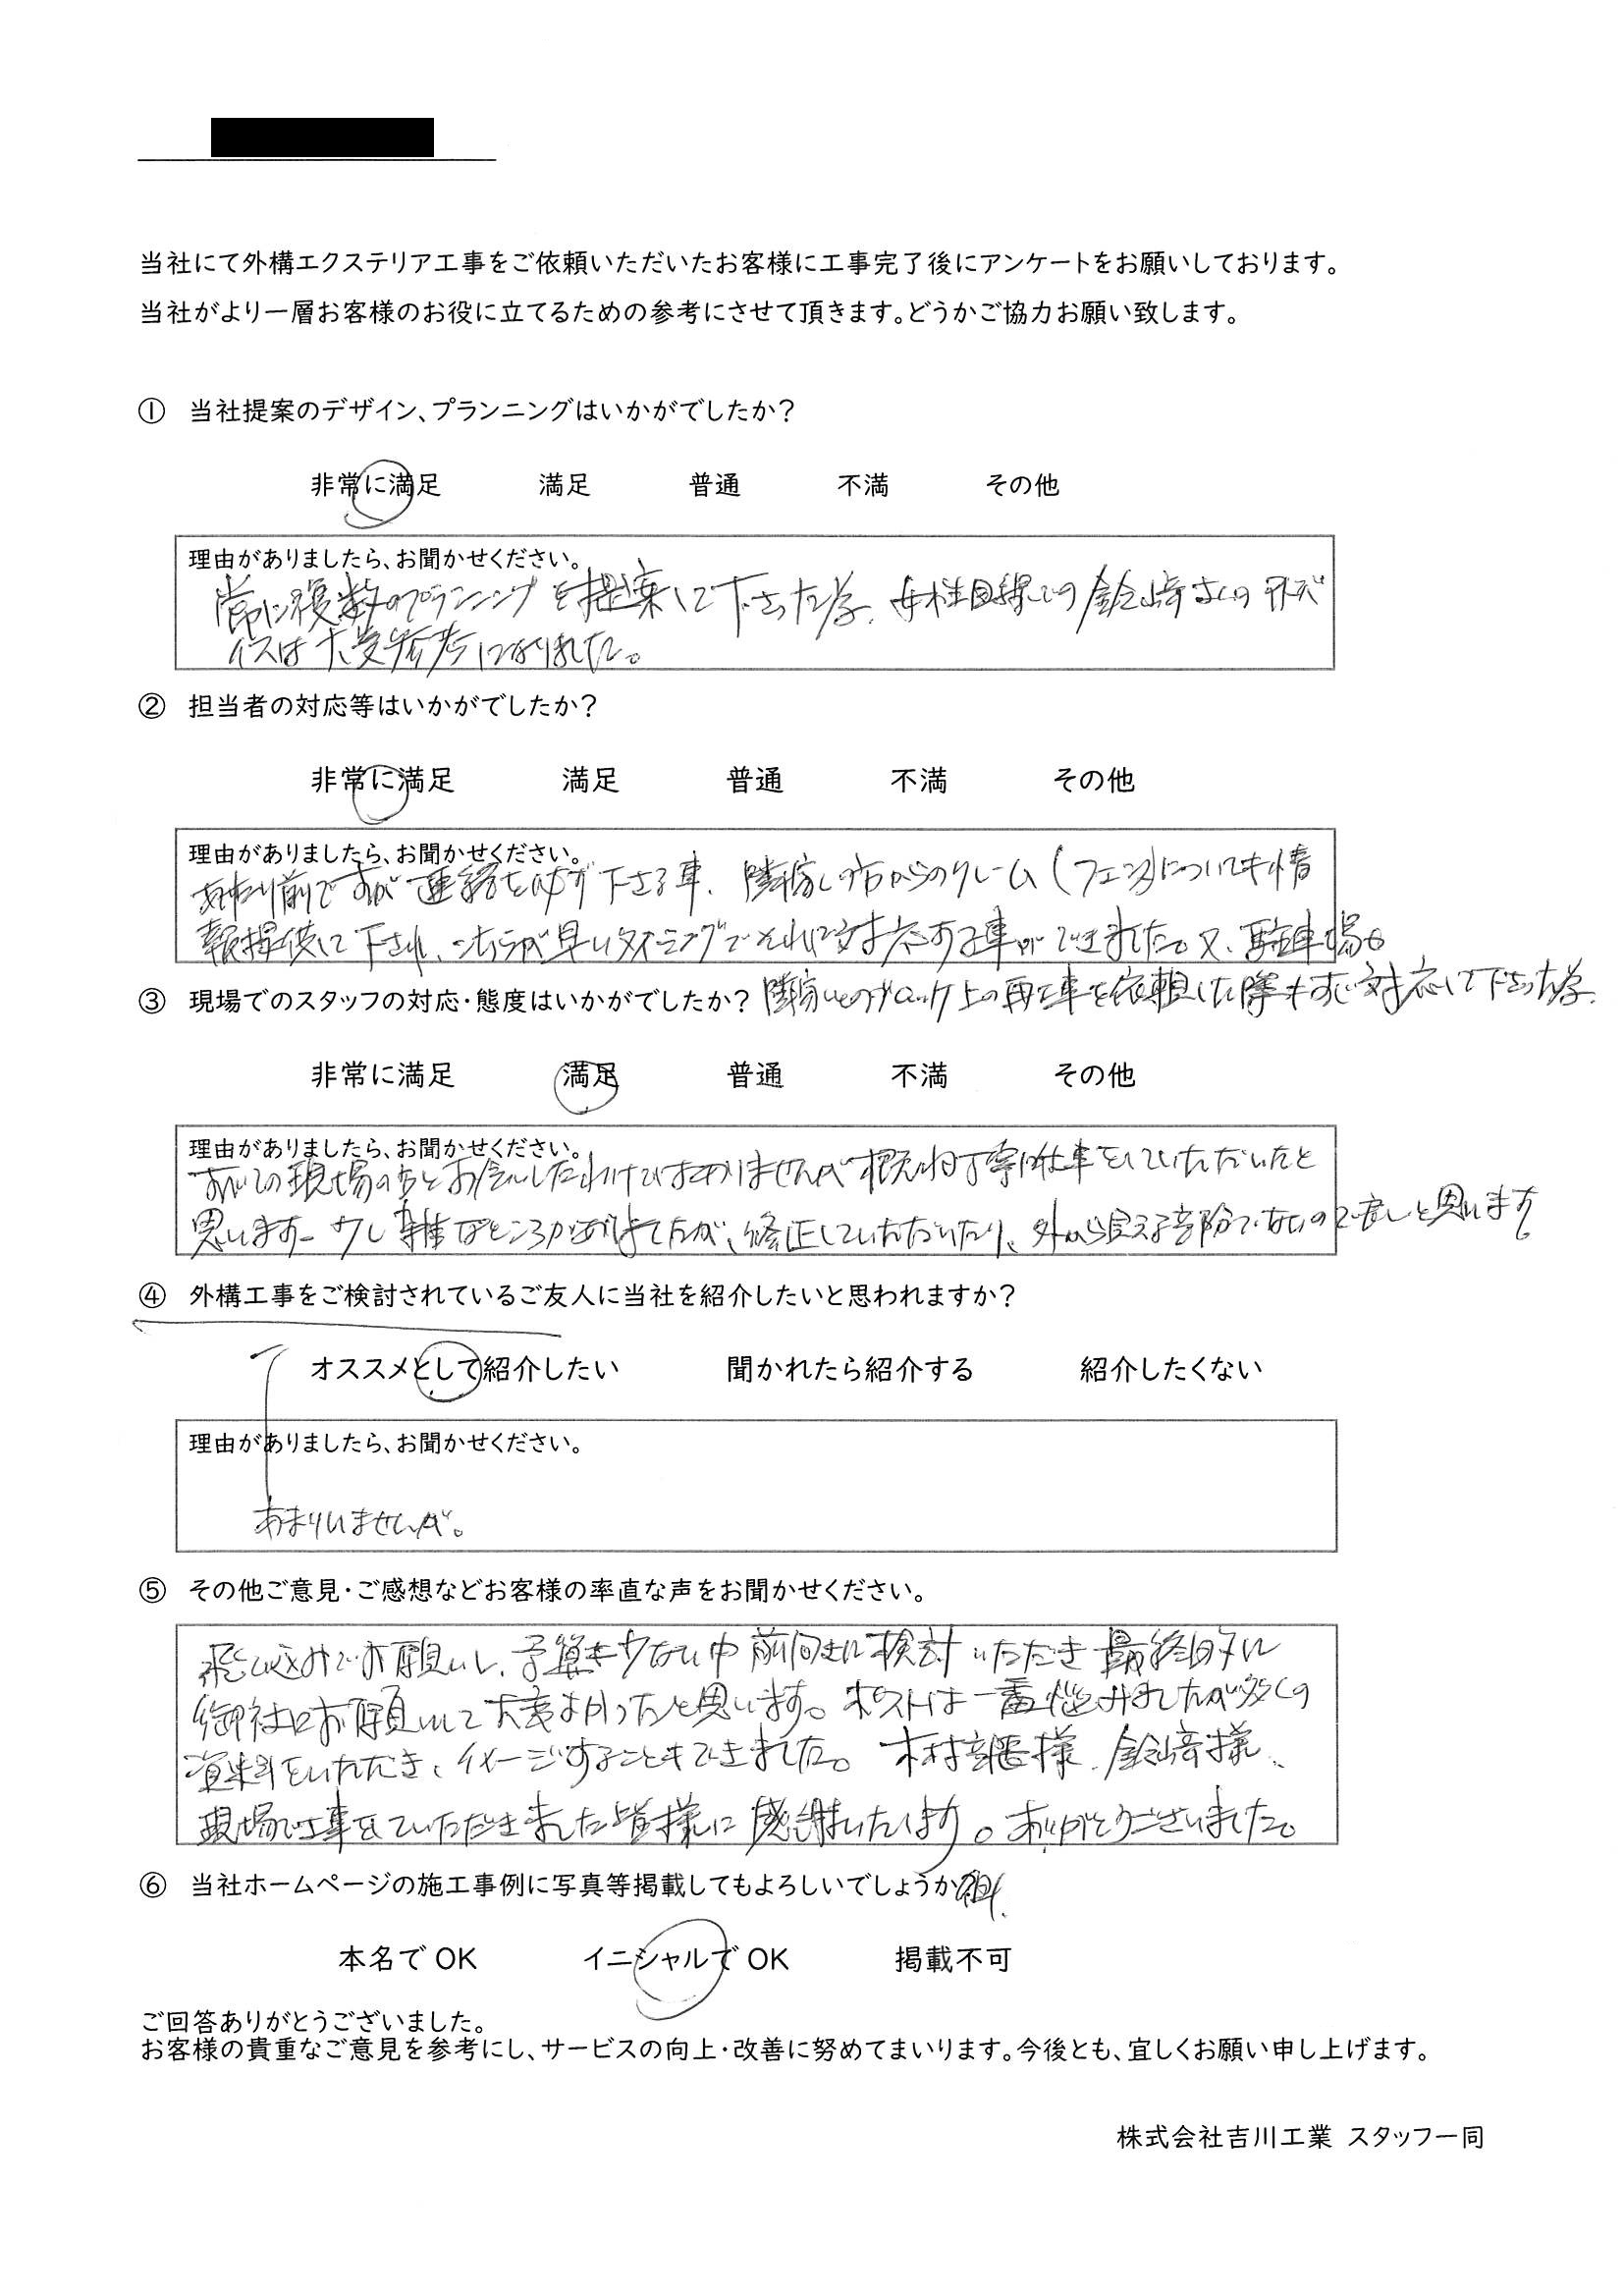 当社にて外構エクステリア工事をご依頼いただいたお客様に工事完了後にアンケートをお願いしております。
当社がより一層お客様のお役に立てるための参考にさせて頂きます。どうかご協力お願い致します。
① 当社提案のデザイン、プランニングはいかがでしたか？
非常に満足 満足 普通 不満 その他
理由がありましたら、お聞かせください。
常に複数のプランニングを提案して下さった事、女性目線での鈴崎さんのアドバ
イスは大変参考になりました。
② 担当者の対応等はいかがでしたか？
非常に満足 満足 普通 不満 その他
理由がありましたら、お聞かせください。
あたり前ですが連絡を必ず下さる事、隣家の方からのクレーム（フェンス）についても情
報提供して下され、こちらが早いタイミングでそれに対応する事ができました。又、駐車場の
③ 現場でのスタッフの対応・態度はいかがでしたか？ 隣家とのブロック上の再工事を依頼した際もすぐ対応して下さった事。
非常に満足 満足 普通 不満 その他
理由がありましたら、お聞かせください。
すべての現場の方とお会いしたわけではありませんが概ね丁寧な仕事をしていただいたと
思います。少し雑なところがありましたが、修正していただいたり、外から見える部分でないので良しと思います。
④ 外構工事をご検討されているご友人に当社を紹介したいと思われますか？
オススメとして紹介したい 聞かれたら紹介する 紹介したくない
理由がありましたら、お聞かせください。
あまりいませんが。
⑤ その他ご意見・ご感想などお客様の率直な声をお聞かせください。
飛び込みでお願いし、予算も少ない中前向きに検討いただき最終的に
御社にお願いして大変よかったと思います。ポストは一番悩みましたが多くの
資料をいただき、イメージすることもできました。木村 様、鈴崎様、
現場で工事をしていただきました皆様に感謝いたします。ありがとうございました。
⑥ 当社ホームページの施工事例に写真等掲載してもよろしいでしょうか
本名で OK イニシャルで OK 掲載不可
ご回答ありがとうございました。
お客様の貴重なご意見を参考にし、サービスの向上・改善に努めてまいります。今後とも、宜しくお願い申し上げます。
株式会社吉川工業 スタッフ一同